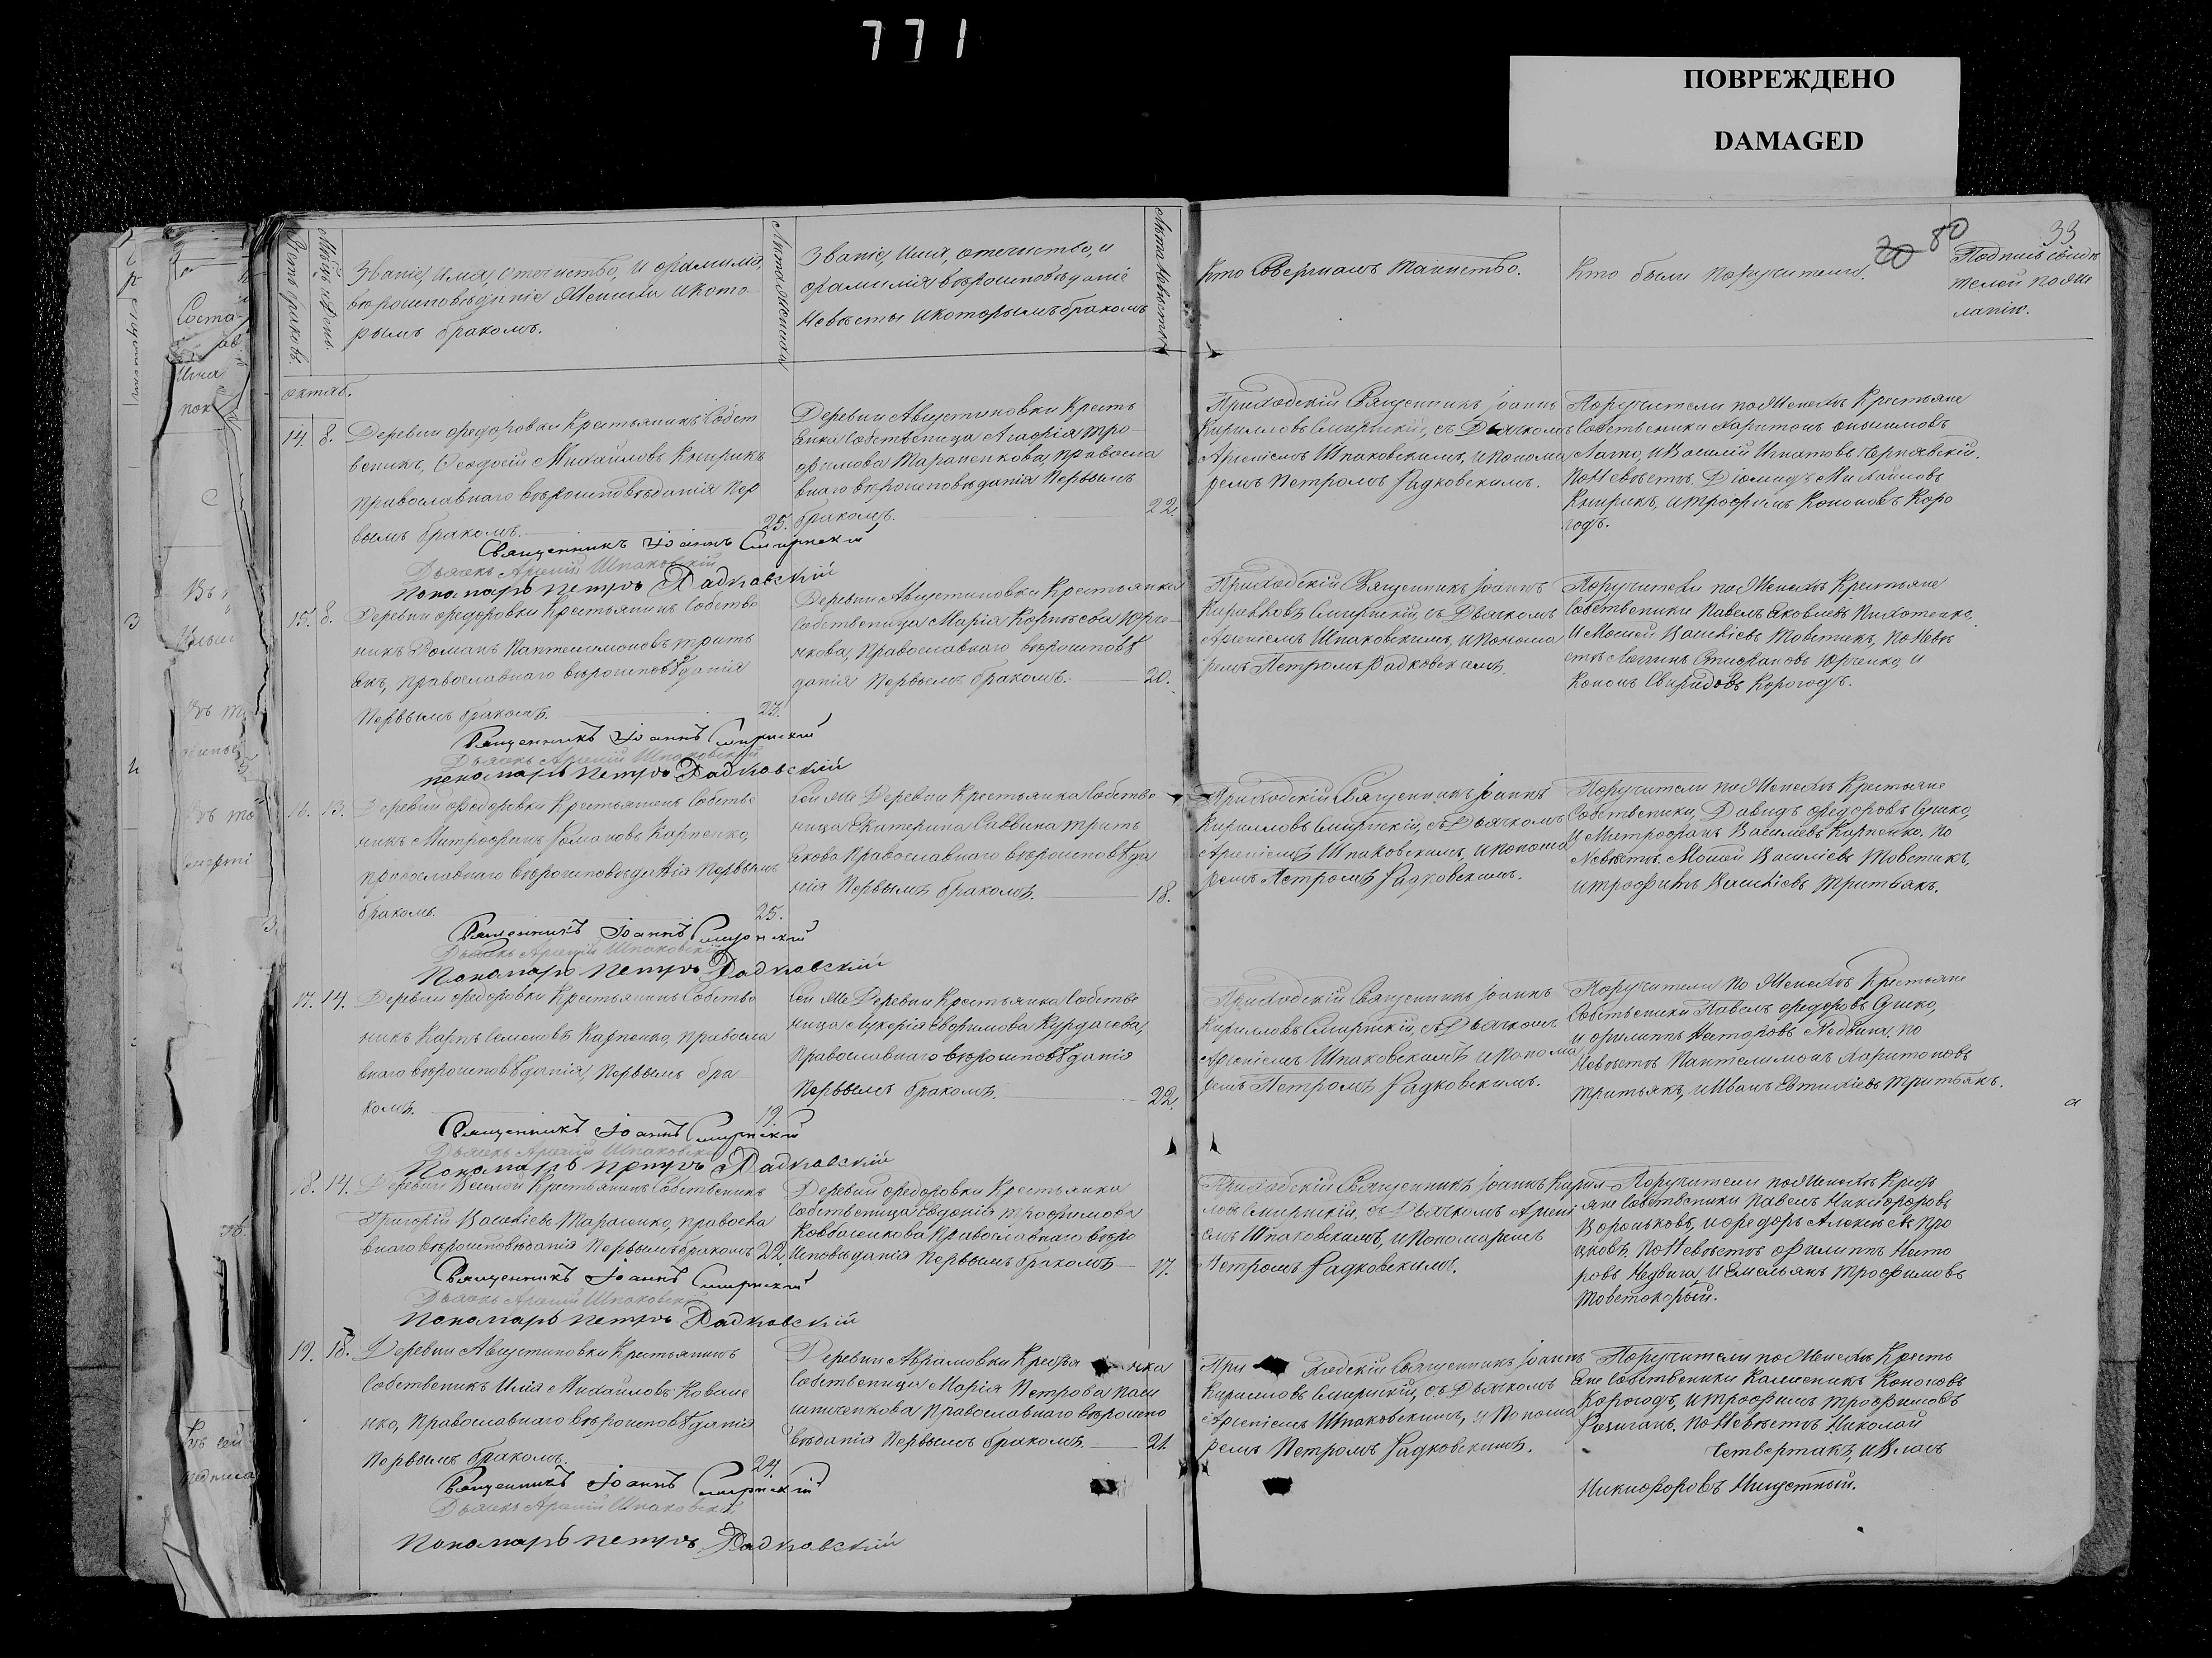 771
ПОВРЕЖДЕНО
DAMAGED
33
20 80
Счетъ браковъ.
Мѣсяцъ и День.
Званіе, Имя, Отечество, и фамилія,
вѣроисповѣданіе Жениха и кото-
рымъ бракомъ.
Лѣта жениха
Званіе, Имя, отечество, и
фамилія вѣроисповѣданіе
Невѣсты и которымъ бракомъ
Лѣта Невѣсты
Кто Совершалъ таинство.
Кто были поручители.
Подпись свидѣ
телей по же
ланію.
октяб.
14. 8.
Деревни Федоровки Крестьянинъ Собст
венникъ, Феодосій Михайловъ Кнырикъ
православнаго вѣроисповѣданія пер
вымъ бракомъ. 25.
Деревни Августиновки Кресть
янка Собственица Агафія Тро-
фимова Тараненкова, правосла
внаго вѣроисповѣданія Первымъ
бракомъ. 22.
Приходскій Священникъ Іоаннъ
Кирилловъ Смирнскій, съ Дьячкомъ
Арсеніемъ Шпаковскимъ, и Понома
ремъ Петромъ Радковскимъ.
Поручители по Женихѣ Крестьяне
Собственики Харитонъ Онисимовъ
и Василій Игнатовъ Чернявскій.
По Невѣстѣ Діомидъ Михайловъ
Кнырикъ, и Трофимъ Кононовъ Коро
годъ.
Священникъ Іоаннъ Смирнскій
Дьячекъ Арсеній Шпаковскій
Пономарь Петръ Радковскій
15. 8.
Деревни Федоровки Крестьянинъ Собстве
никъ Романъ Пантелимоновъ Трить
якъ, православнаго вѣроисповѣданія
Первымъ бракомъ. 23.
Деревни Августиновки Крестьянка
Собственица Марія Корнѣева Юрче
нкова, Православнаго вѣроисповѣ
данія Первымъ бракомъ. 20.
Приходскій Священникъ Іоаннъ
Кирилловъ Смирнскій, съ Дьячкомъ
Арсеніемъ Шпаковскимъ, и Понома
ремъ Петромъ Радковскимъ.
Поручители по Женихѣ Крестьяне
Собственики Павелъ Яковлевъ Пихотенко,
и Мосей Васильевъ Товстикъ, по Невѣ
стѣ Логинъ Стифановъ Юрченко, и
Кононъ Свиридовъ Корогодъ.
Священникъ Іоаннъ Смирнскій
Дьячекъ Арсеній Шпаковскій
пономарь Петръ Радковскій
16. 13.
Деревни Федоровки Крестьянинъ Собстве
никъ Митрофанъ Романовъ Карпенко,
православнаго вѣроисповѣданія Первымъ
бракомъ. 25.
Сей же Деревни Крестьянка Собстве
ница Екатерина Саввина Трить
якова Православнаго вѣроисповѣда
нія Первымъ бракомъ. 18.
Приходскій Священникъ Іоаннъ
Кирилловъ Смирнскій, съ Дьячкомъ
Арсеніемъ Шпаковскимъ, и Понома
ремъ Петромъ Радковскимъ.
Поручители по Женихѣ Крестьяне
Собственики, Давидъ Федоровъ Сушко,
и Митрофанъ Васильевъ Карпенко. по
Невѣстѣ Мосей Васильевъ Товстикъ,
и Трофимъ Васильевъ Тритьякъ.
Священникъ Іоаннъ Смирнскій
Дьячекъ Арсеній Шпаковскій
Пономарь Петръ Радковскій
17. 14.
Деревни Федоровки Крестьянинъ Собстве
никъ Карпъ Семеновъ Карпенко, правосла
внаго вѣроисповѣданія, Первымъ бра-
комъ. 19.
Сей же Деревни Крестьянка Собстве
ница Лукерія Евфимова Курдасова,
Православнаго вѣроисповѣданія
Первымъ бракомъ. 22.
Приходскій Священникъ Іоаннъ
Кирилловъ Смирнскій, съ Дьячкомъ
Арсеніемъ Шпаковскимъ и Понома
ремъ Петромъ Радковскимъ.
Поручители по Женихѣ Крестьяне
Собственики Павелъ Федоровъ Сушко,
и Филиппъ Несторовъ Недвига, по
Невѣстѣ Пантелимонъ Харитоновъ
Тритьякъ, и Иванъ Евтихіевъ Тритьякъ.
Священникъ Іоаннъ Смирнскій
Дьячекъ Арсеній Шпаковскій
Пономарь Петръ Радковскій
18. 14.
Деревни Веселой Крестьянинъ Собственикъ
Григорій Васильевъ Тарасенко, правосла
внаго вѣроисповѣданія Первымъ бракомъ 22.
Деревни Федоровки Крестьянка
Собственица Евдокія Трофимова
Ковбасенкова Православнаго вѣро
исповѣданія Первымъ бракомъ 17.
Приходскій Священникъ Іоаннъ Кирил
ловъ Смирнскій, съ Дьячкомъ Арсені
емъ Шпаковскимъ, и Пономаремъ
Петромъ Радковскимъ.
Поручители по Женихѣ Кресть
яне Собственики Павелъ Никифоровъ
Вороньковъ, и Федоръ Алексѣевъ Про
По Невѣстѣ Филиппъ Несто
ровъ Недвига, и Емельянъ Трофимовъ
Товстокорый.
Священникъ Іоаннъ Смирнскій
Дьячекъ Арсеній Шпаковскій
Пономарь Петръ Радковскій
19. 18.
Деревни Августиновки Крестьянинъ
Собственикъ Илія Михайловъ Ковале
нко, Православнаго вѣроисповѣданія
Первымъ бракомъ. 24.
Деревни Аврамовки Крестья нка
Собственица Марія Петрова
Православнаго вѣроиспо
вѣданія Первымъ бракомъ. 21.
При ходскій Священникъ Іоаннъ
Кирилловъ Смирнскій, съ Дьячкомъ
Арсеніемъ Шпаковскимъ, и Понома
ремъ Петромъ Радковскимъ.
Поручители по Женихѣ Кресть
яне Собственики Калиникъ Кононовъ
Корогодъ, и Трофимъ Трофимовъ
По Невѣстѣ Николай
Четвертакъ, и Власъ
Никифоровъ Нищетный.
Священникъ Іоаннъ Смирнскій
Дьячекъ Арсеній Шпаковскій
Пономарь Петръ Радковскій